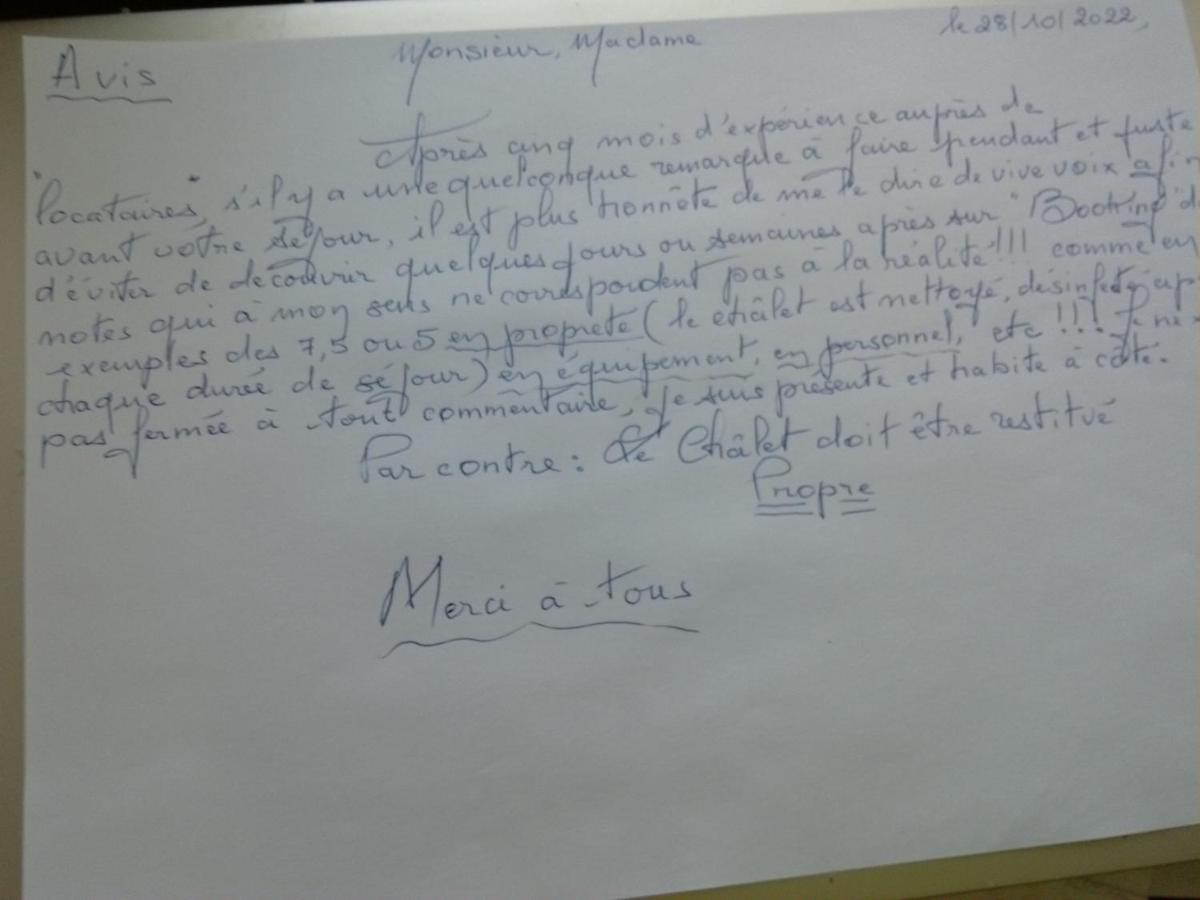 le 28/10/2022,
Avis
Monsieur, Madame
Après cinq mois d'expérience auprès de
"locataires", s'il y a une quelconque remarque à faire pendant et juste
avant votre séjour, il est plus honnête de me le dire de vive voix afin
d'éviter de découvrir quelques jours ou semaines après sur "Booking" d
notes qui à mon sens ne correspondent pas à la réalité!!! comme en
exemples des 7,5 ou 5 en propreté (le châlet est nettoyé, désinfecté, ap
chaque durée de séjour) en équipement, en personnel, etc!!! Je ne
pas fermée à tout commentaire, je suis présente et habite à côté.
Par contre: Le Châlet doit être restitué
Propre
Merci à tous